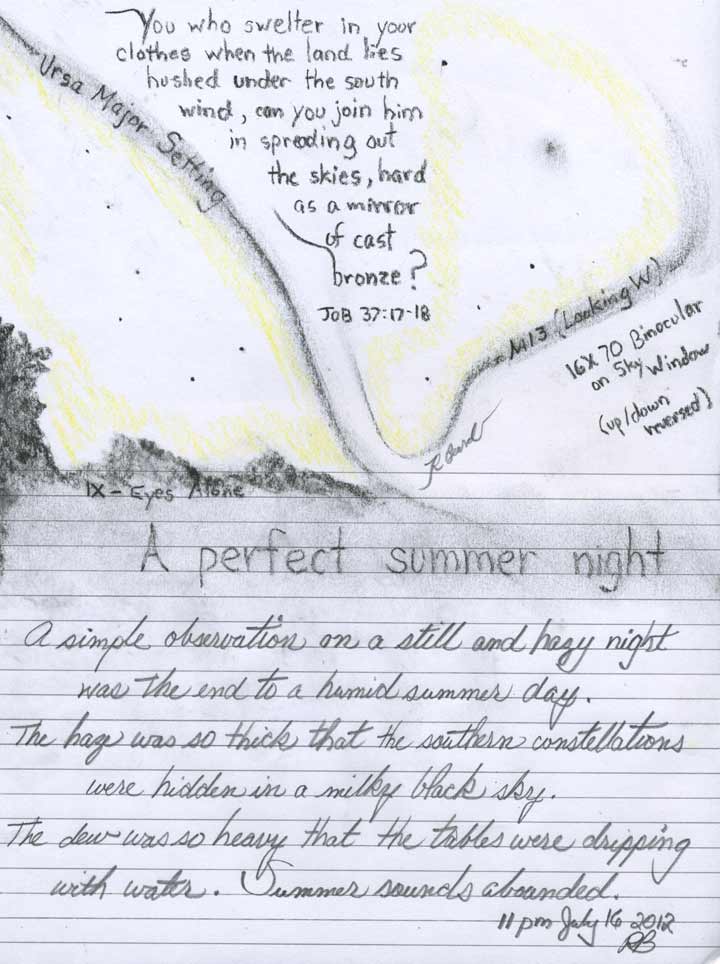 You who swelter in your
clothes when the land lies
hushed under the south
wind, can you join him
in spreading out
the skies, hard
as a mirror
of cast
bronze?
JOB 37:17-18
Ursa Major Setting
M13 (Looking W)
16X70 Binocular
on Sky Window
(up/down
reversed)
1X - Eyes Alone
A perfect summer night
A simple observation on a still and hazy night
was the end to a humid summer day.
The haze was so thick that the southern constellations
were hidden in a milky black sky.
The dew was so heavy that the tables were dripping
with water. Summer sounds abounded.
11 pm July 16 2012
RB